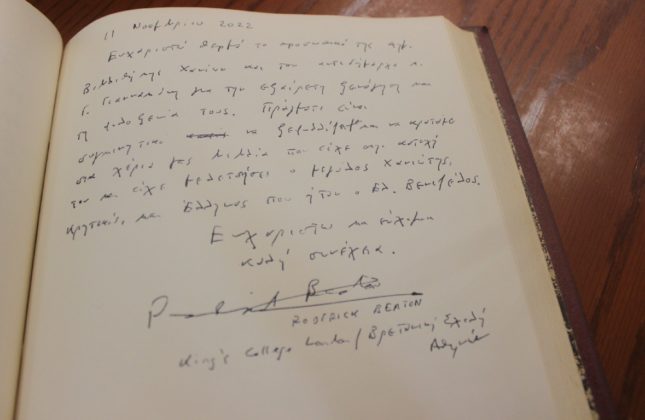 11 Νοεμβρίου 2022
Ευχαριστώ θερμά το προσωπικό της Δημ.
Βιβλιοθήκης Χανίων και τον αντιδήμαρχο κ.
Γ. Γιαννακάκη για την εξαίρετη ξενάγηση και
τη φιλοξενία τους. Πράγματι είναι
συγκινητικό να ξεφυλλίζουμε και να κρατάμε
στα χέρια μας βιβλία που είχε στην κατοχή
του και είχε μελετήσει ο μεγάλος Χανιώτης,
Κρητικός, και Έλληνας που ήταν ο Ελ. Βενιζέλος.
Ευχαριστώ και εύχομαι
καλή συνέχεια.
RODERICK BEATON
King's College London / Βρετανική Σχολή
Αθηνών